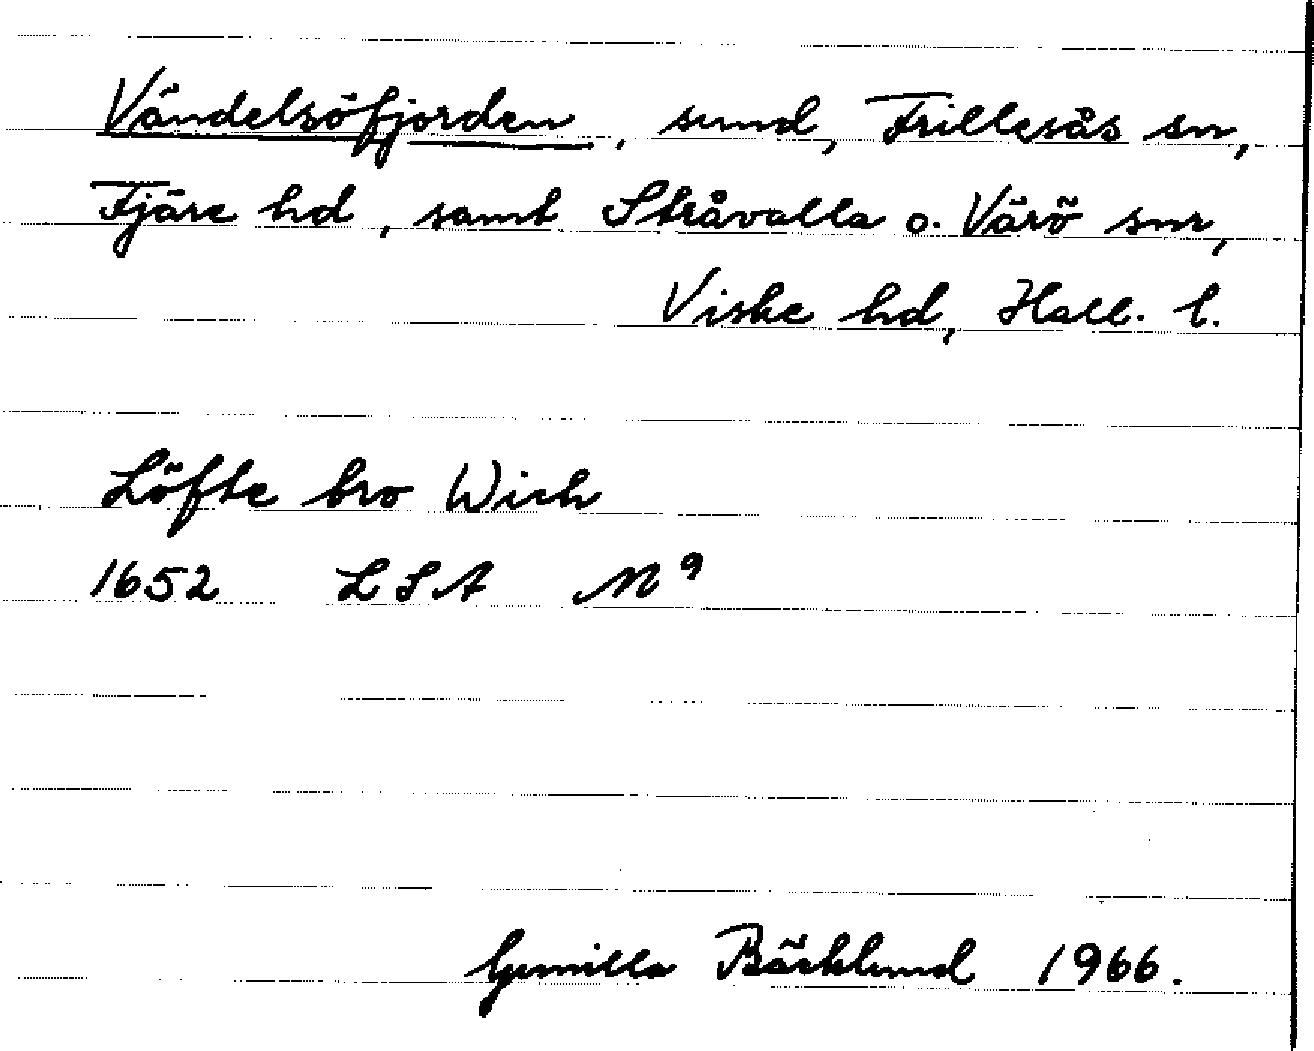 Vändelsöfjorden, sund, Frillesås sn,
Fjäre hd, samt Stråvalla o. Värö snr,
Viske hd, Hall. l.
Löfte bro Wich
1652 LSA N 9
Gunilla Bäcklund 1966.